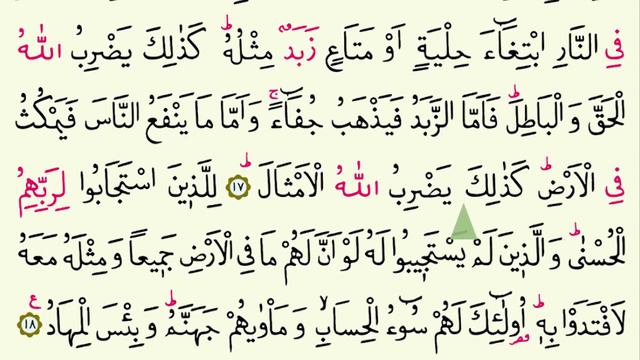 فِي النَّارِ ابْتِغَٓاءَ حِلْيَةٍ اَوْ مَتَاعٍ زَبَدٌ مِثْلُهُۜ كَذٰلِكَ يَضْرِبُ اللّٰهُ
الْحَقَّ وَالْبَاطِلَۜ فَاَمَّا الزَّبَدُ فَيَذْهَبُ جُفَٓاءًۚ وَاَمَّا مَا يَنْفَعُ النَّاسَ فَيَمْكُثُ
فِي الْاَرْضِۜ كَذٰلِكَ يَضْرِبُ اللّٰهُ الْاَمْثَالَۜ ﴿١٧﴾ لِلَّذِينَ اسْتَجَابُوا لِرَبِّهِمُ
الْحُسْنٰىۜ وَالَّذِينَ لَمْ يَسْتَجِيبُوا لَهُ لَوْ اَنَّ لَهُمْ مَا فِي الْاَرْضِ جَمِيعاً وَمِثْلَهُ مَعَهُ
لَافْتَدَوْا بِهِۜ اُو۬لٰٓئِكَ لَهُمْ سُٓوءُ الْحِسَابِۙ وَمَأْوٰيهُمْ جَهَنَّمُۜ وَبِئْسَ الْمِهَادُ۟ ﴿١٨﴾